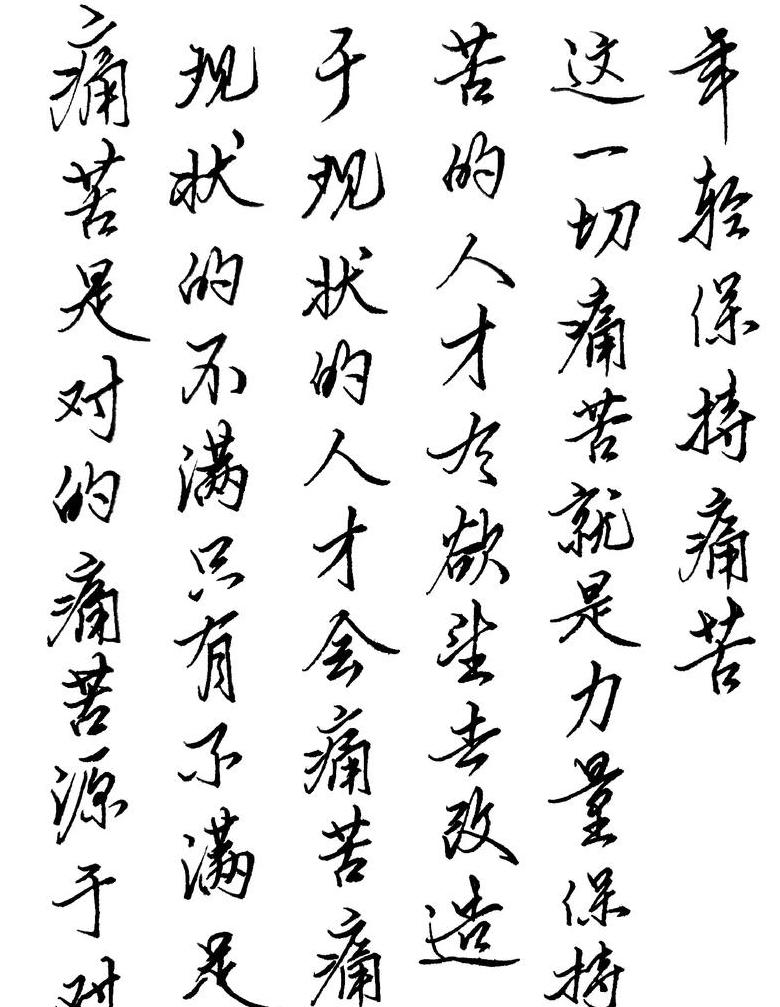 痛苦是对的痛苦源于对
现状的不满只有不满足
于现状的人才会痛苦痛
苦的人才有欲望去改造
这一切痛苦就是力量保持
年轻保持痛苦